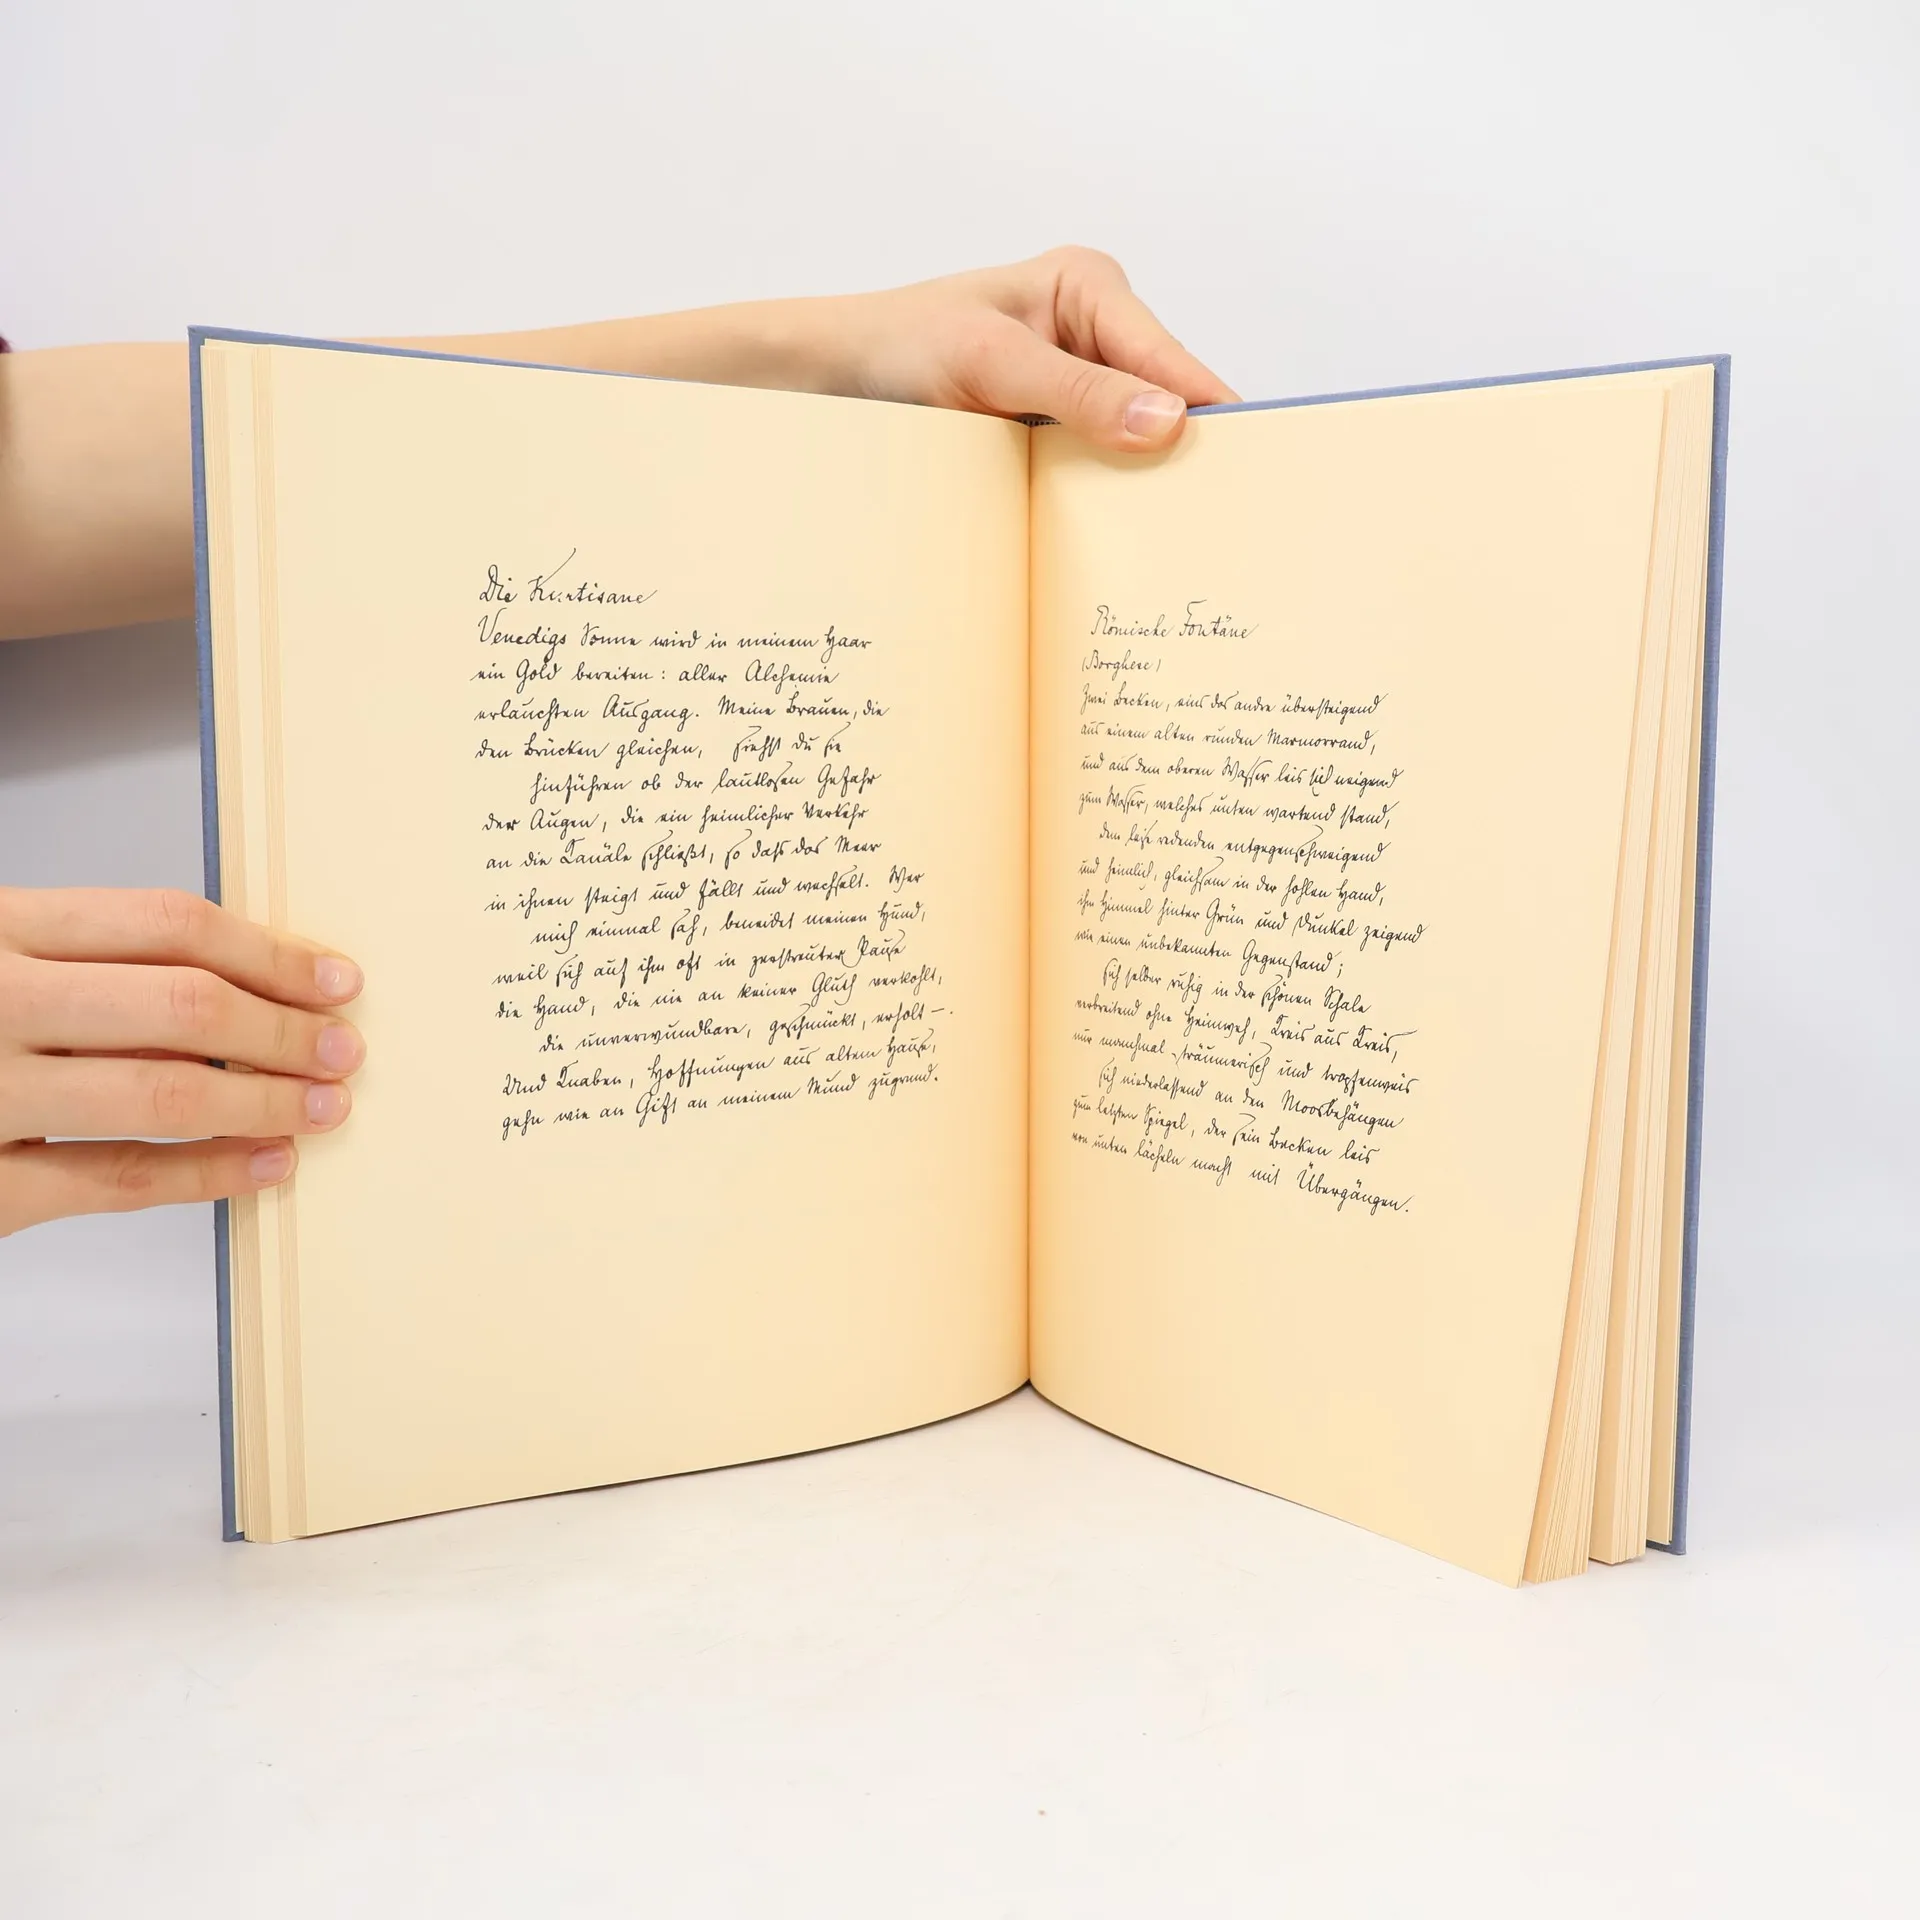 Die Kurtisane
Venedigs Sonne wird in meinem Haar
ein Gold bereiten: aller Alchemie
erlauchten Ausgang. Meine Brauen, die
den Brücken gleichen, siehst du sie
hinführen ob der lautlosen Gefahr
der Augen, die ein heimlicher Verkehr
an die Kanäle schließt, so daß das Meer
in ihnen steigt und fällt und wechselt. Wer
mich einmal sah, beneidet meinen Hund,
weil sich auf ihm oft in zerstreuter Pause
die Hand, die nie an keiner Gluth verkohlt,
die unverwundbare, geschmückt, erholt –.
Und Knaben, Hoffnungen aus altem Hause,
gehn wie an Gift an meinem Mund zugrund.
Römische Fontäne
(Borghese)
Zwei Becken, eins das andre übersteigend
aus einem alten runden Marmorrand,
und aus dem oberen Wasser leis sich neigend
zum Wasser, welches unten wartend stand,
dem leise redenden entgegenschweigend
und heimlich, gleichsam in der hohlen Hand,
ihm Himmel hinter Grün und Dunkel zeigend
wie einen unbekannten Gegenstand;
sich selber ruhig in der schönen Schale
verbreitend ohne Heimweh, Kreis aus Kreis,
nur manchmal träumerisch und tropfenweis
sich niederlassend an den Moosbehängen
zum letzten Spiegel, der sein Becken leis
von unten lächeln macht mit Übergängen.